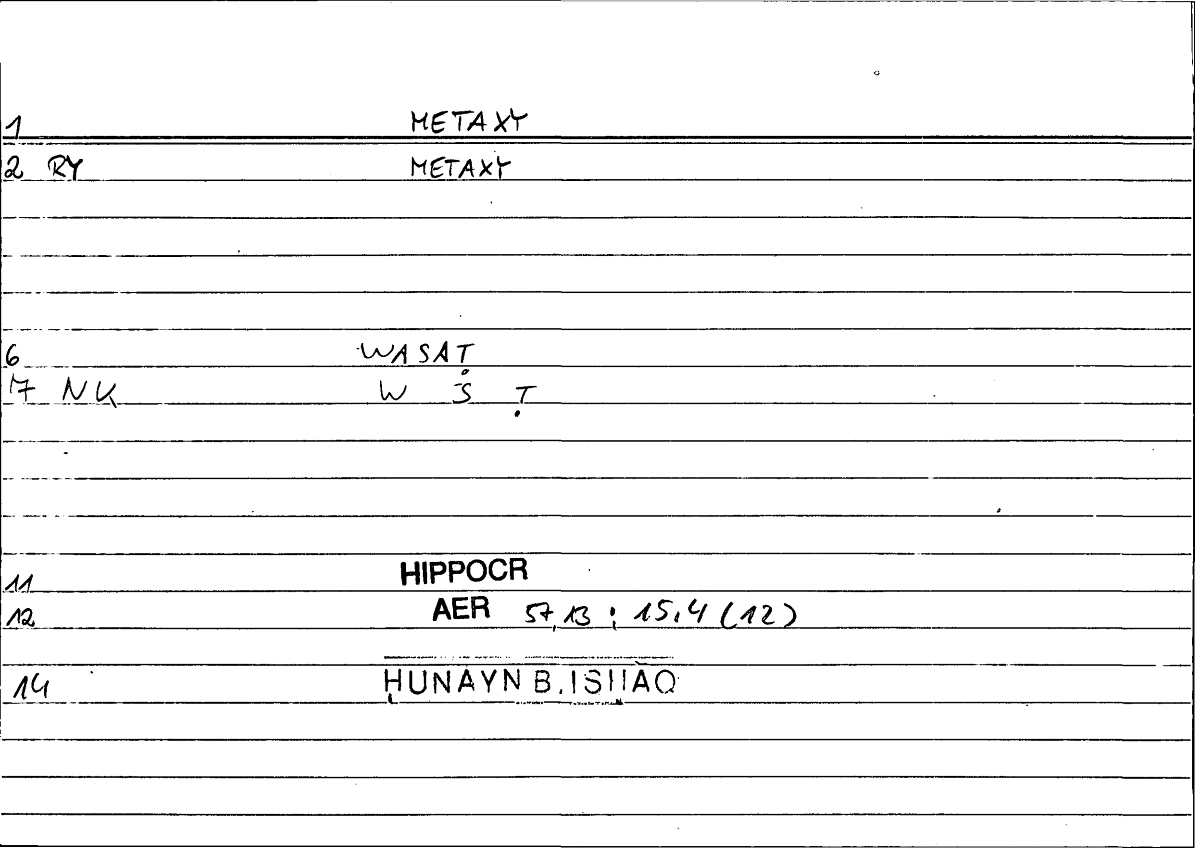 1 METAXY
2 RY METAXY
6 WASAṬ
7 NK W S Ṭ
11 HIPPOCR
12 AER 57,13 ; 15,4 (12)
14 ḤUNAYN B. ISḤĀQ